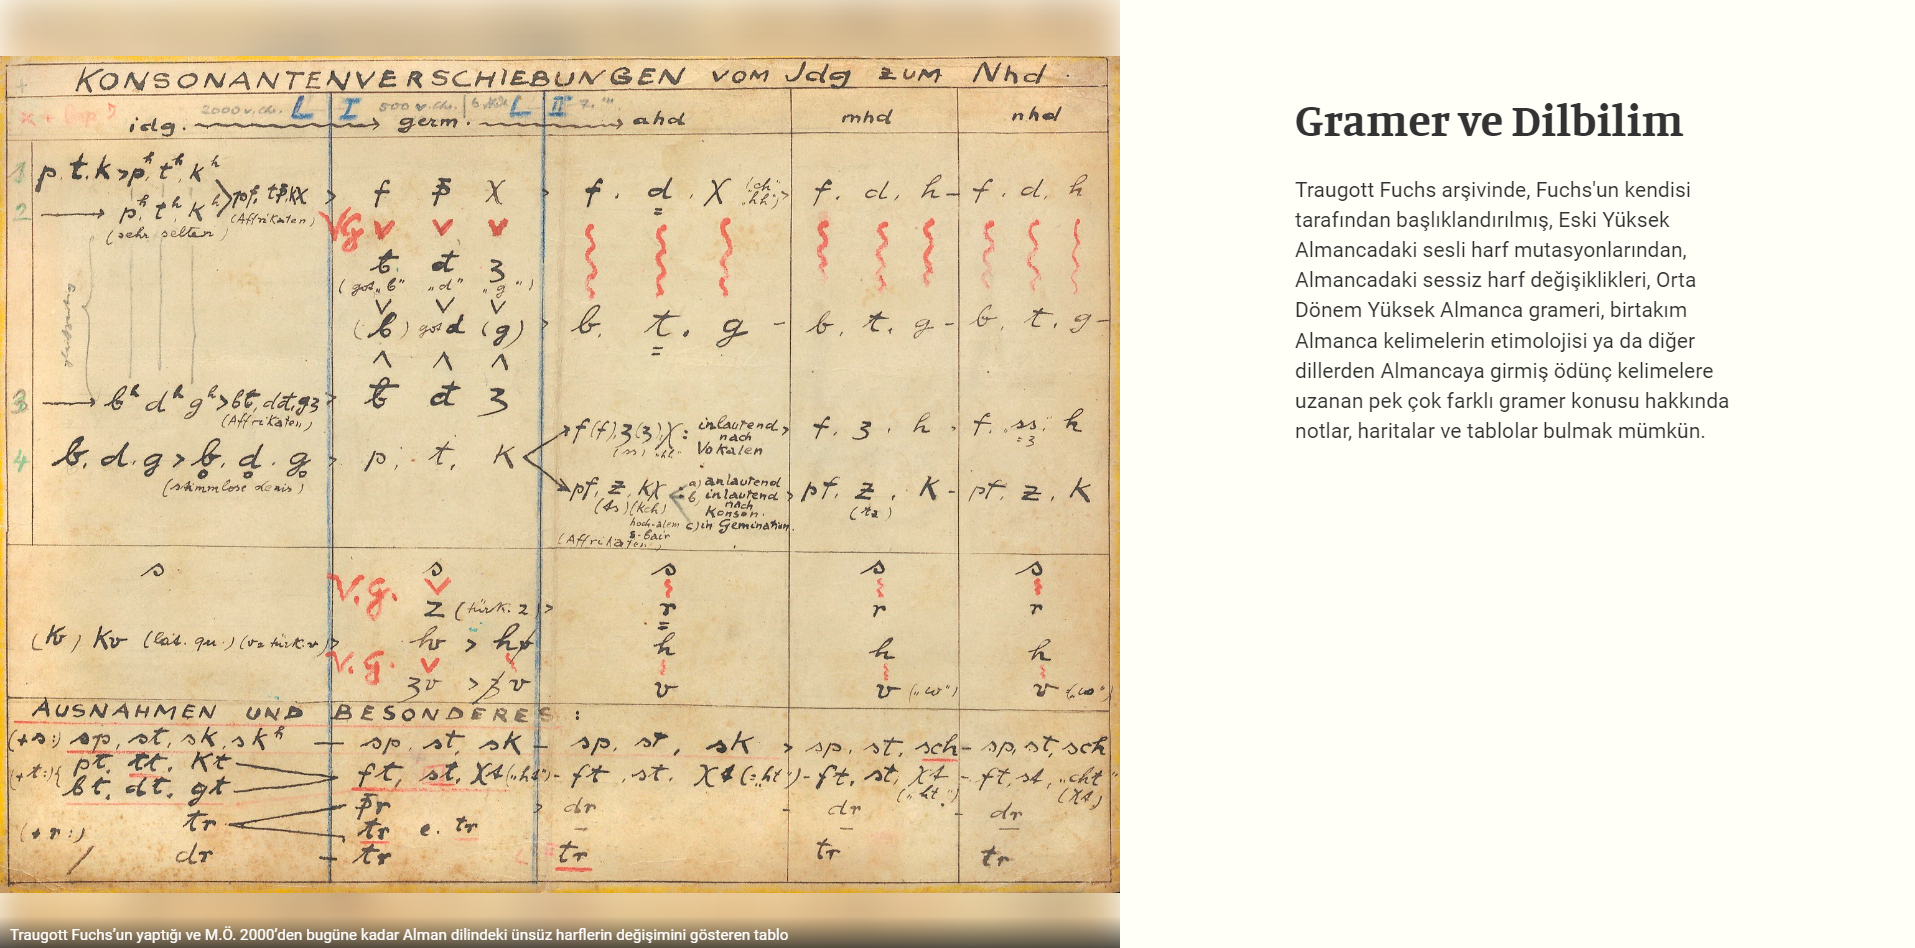 KONSONANTENVERSCHIEBUNGEN VOM Jdg ZUM Nhd
2000 v. Chr. L I 500 v. Chr. L II 7.
idg. germ. ahd mhd nhd
1 p. t. k > pʰ. tʰ. kʰ
pf, tþ, kχ > f þ χ > f. d. χ ("ch" "hh") > f. d. h – f. d. h
2 pʰ. tʰ. kʰ (Affrikaten)
(sehr selten)
V.G.
ƀ đ ʒ
(got. "b" "d" "g")
(b) got d (g) > b. t. g – b. t. g – b. t. g –
3 bʰ dʰ gʰ > bƀ, dđ, gʒ > ƀ đ ʒ
(Affrikaten)
f(f), ʒ(ʒ), χ: inlautend nach Vokalen > f. ʒ. h – f. ss. h
(ss) "hh" = ʒ
4 b. d. g > b̥. d̥. g̥ > p. t. k
(stimmlose Lenis)
pf. z. kχ a) anlautend > pf. z. k – pf. z. k
(ts) (kch) b) inlautend nach Konson. (tz)
hoch-alem c) in Gemination.
s-bair
(Affrikaten)
s s s s s
V.G.
z (türk. z) > r r r
(k) kv (lat. qu.) (v = türk. v) > hv > hv h h h
V.G.
ʒv > ʒv v v ("w") v ("w")
AUSNAHMEN UND BESONDERES:
(+s:) sp, st, sk, skʰ – sp. st, sk – sp. st, sk > sp, st, sch – sp, st, sch
(+t:) pt. tt. kt
ft, st, χt ("ht") – ft, st. χt (="ht") – ft, st, χt – ft, st, "cht"
bt. dt. gt ("ht") (χt)
þr > dr – dr – dr
(+r:) tr
tr e. tr
dr – tr tr tr tr
Traugott Fuchs'un yaptığı ve M.Ö. 2000'den bugüne kadar Alman dilindeki ünsüz harflerin değişimini gösteren tablo
Gramer ve Dilbilim
Traugott Fuchs arşivinde, Fuchs'un kendisi
tarafından başlıklandırılmış, Eski Yüksek
Almancadaki sesli harf mutasyonlarından,
Almancadaki sessiz harf değişiklikleri, Orta
Dönem Yüksek Almanca grameri, birtakım
Almanca kelimelerin etimolojisi ya da diğer
dillerden Almancaya girmiş ödünç kelimelere
uzanan pek çok farklı gramer konusu hakkında
notlar, haritalar ve tablolar bulmak mümkün.